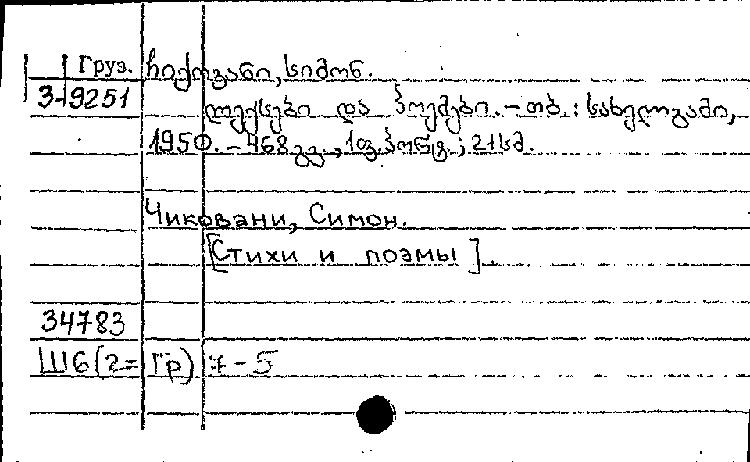 Груз. ჩიქოვანი, სიმონ.
3-9251
ლექსები და პოემები. - თბ.: სახელგამი,
1950. - 468 გვ., 1 ფ. პორტ.; 21 სმ.
Чиковани, Симон.
[Стихи и поэмы].
34783
Ш6(2=Гр)7-5